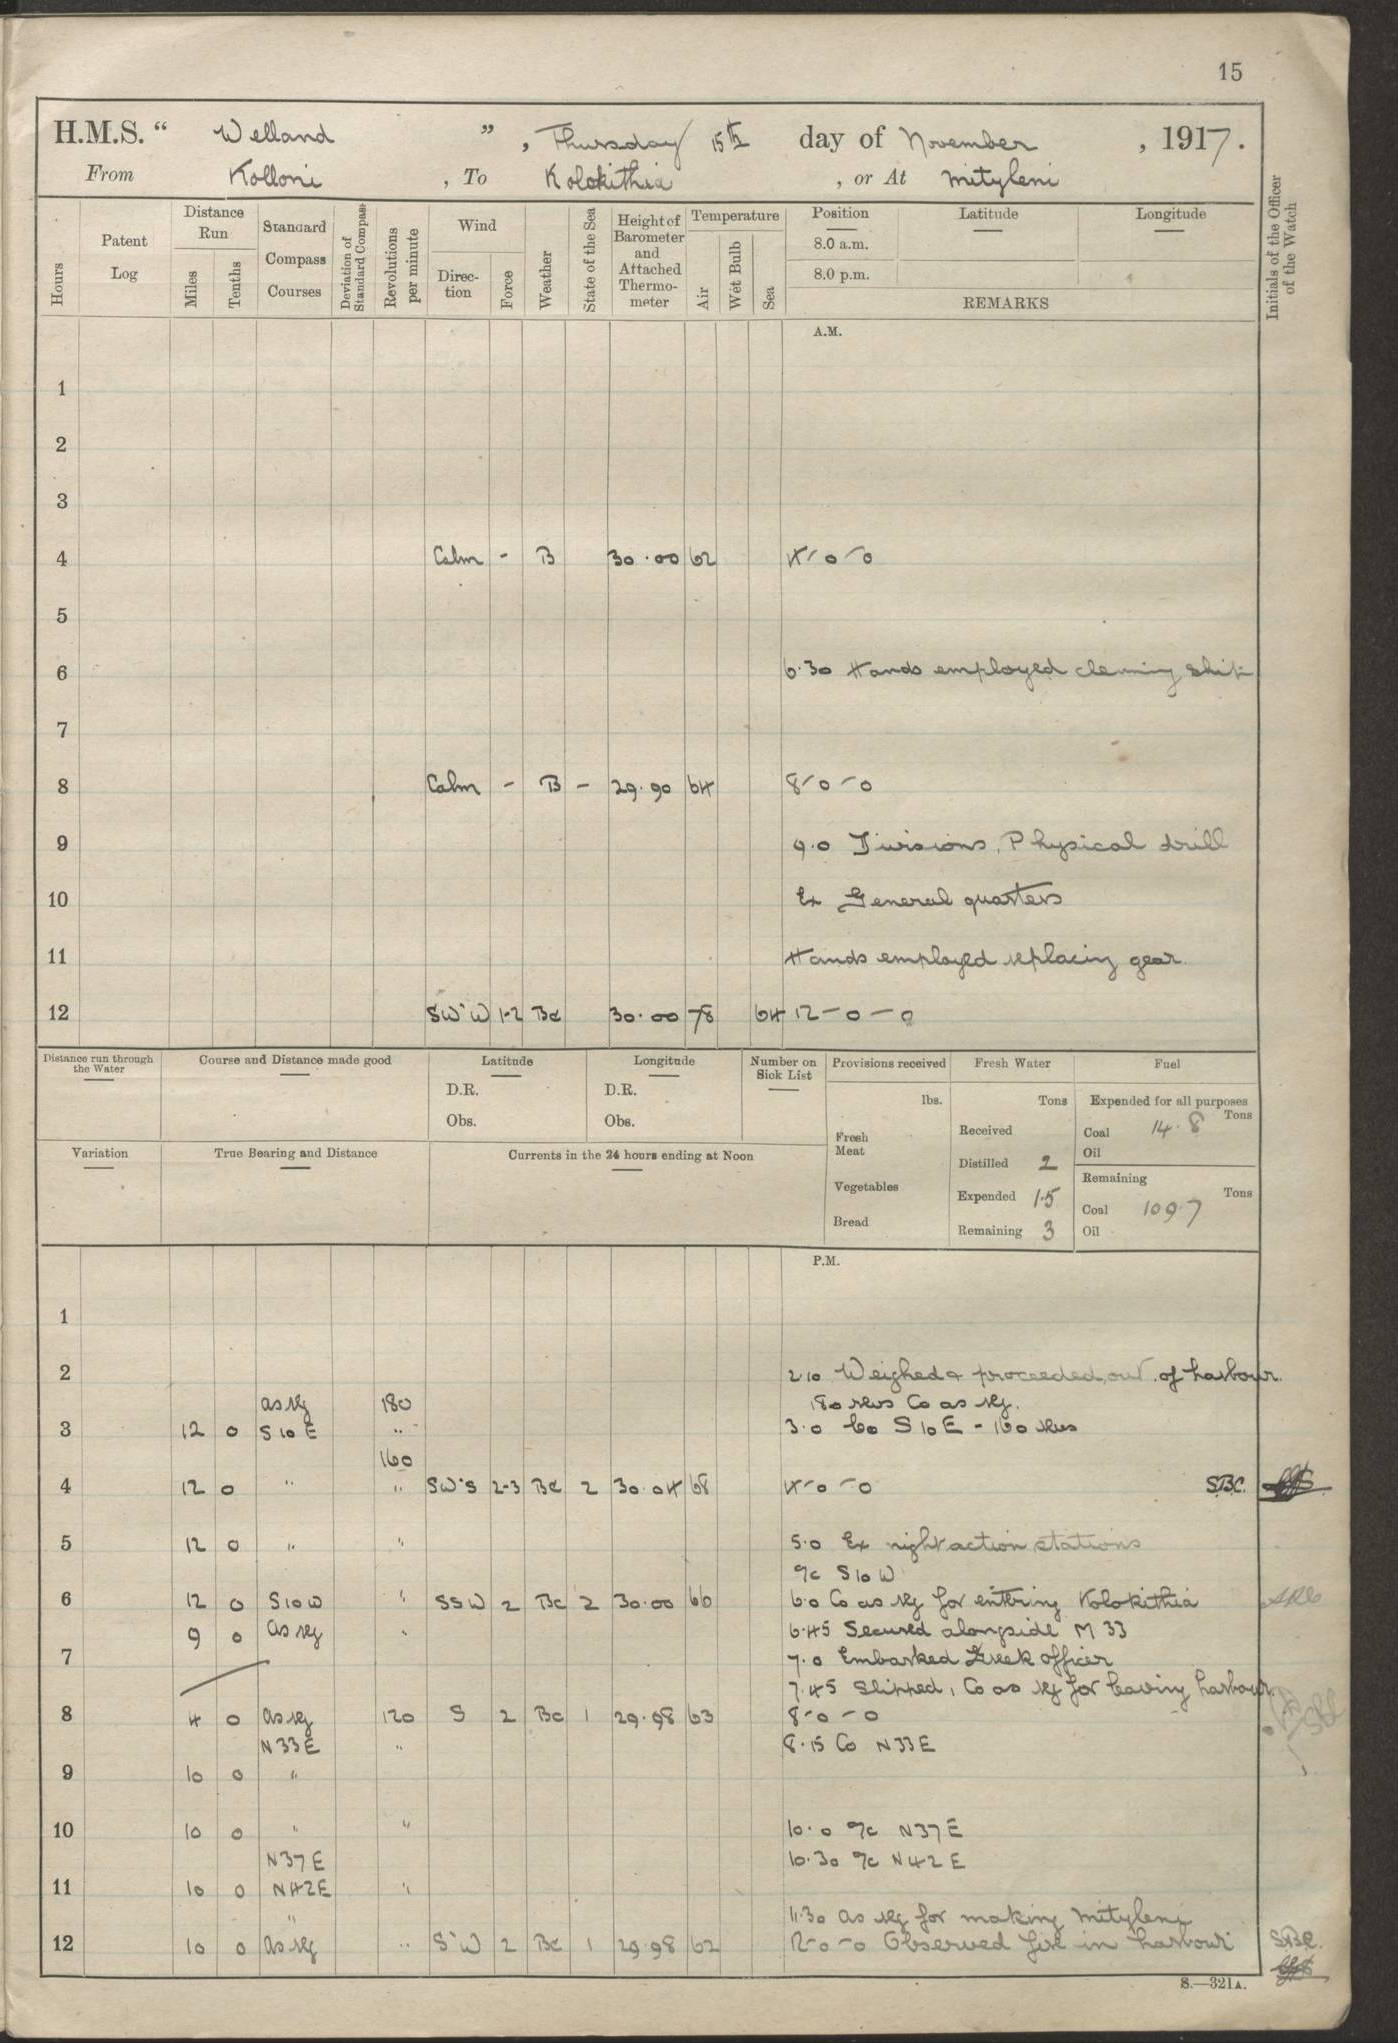 15
H.M.S. " Welland ", Thursday 15th day of November, 1917.
From Kolloni, To Kolokithia, or At Mityleni
Hours
Patent Log
Distance Run
Miles
Tenths
Standard Compass Courses
Deviation of Standard Compass
Revolutions per minute
Wind
Direction
Force
Weather
State of the Sea
Height of Barometer and Attached Thermometer
Temperature
Air
Wet Bulb
Sea
Position Latitude Longitude
8.0 a.m.
8.0 p.m.
REMARKS
Initials of the Officer of the Watch
A.M.
1
2
3
4 Calm - B 30.00 62 4-0-0
5
6 6.30 Hands employed cleaning ship
7
8 Calm - B - 29.90 64 8-0-0
9 9.0 Divisions, Physical drill
10 Ex General quarters
11 Hands employed replacing gear.
12 SW'W 1-2 Bc 30.00 78 64 12-0-0
Distance run through the Water
Course and Distance made good
Latitude
D.R.
Obs.
Longitude
D.R.
Obs.
Number on Sick List
Provisions received
lbs.
Fresh Meat
Vegetables
Bread
Fresh Water
Tons
Received
Distilled 2
Expended 1.5
Remaining 3
Fuel
Expended for all purposes
Tons
Coal 14.8
Oil
Remaining
Tons
Coal 109.7
Oil
Variation
True Bearing and Distance
Currents in the 24 hours ending at Noon
P.M.
1
2 2 10 Weighed & proceeded out of harbour.
as rq 180 180 revs Co as rq.
3 12 0 S 10 E " 3.0 Co S 10 E - 160 revs
160
4 12 0 " " SW'S 2-3 Bc 2 30.04 68 4-0-0 S.B.C.
5 12 0 " " 5.0 Ex night action stations
a/c S 10 W
6 12 0 S 10 W " SSW 2 Bc 2 30.00 66 6.0 Co as rq for entering Kolokithia
9 0 as rq " 6.45 Secured alongside M 33
7 7.0 Embarked Greek officer
7.45 Slipped, Co as rq for leaving harbour.
8 4 0 as rq 120 S 2 Bc 1 29.98 63 8-0-0
N 33 E " 8.15 Co N 33 E
9 10 0 "
10 10 0 " " 10.0 a/c N 37 E
N 37 E 10.30 a/c N 42 E
11 10 0 N 42 E "
" 11.30 as rq for making Mityleni
12 10 0 as rq " S'W 2 Bc 1 29.98 62 12-0-0 Observed fire in harbour
S.B.C.
S.—321A.